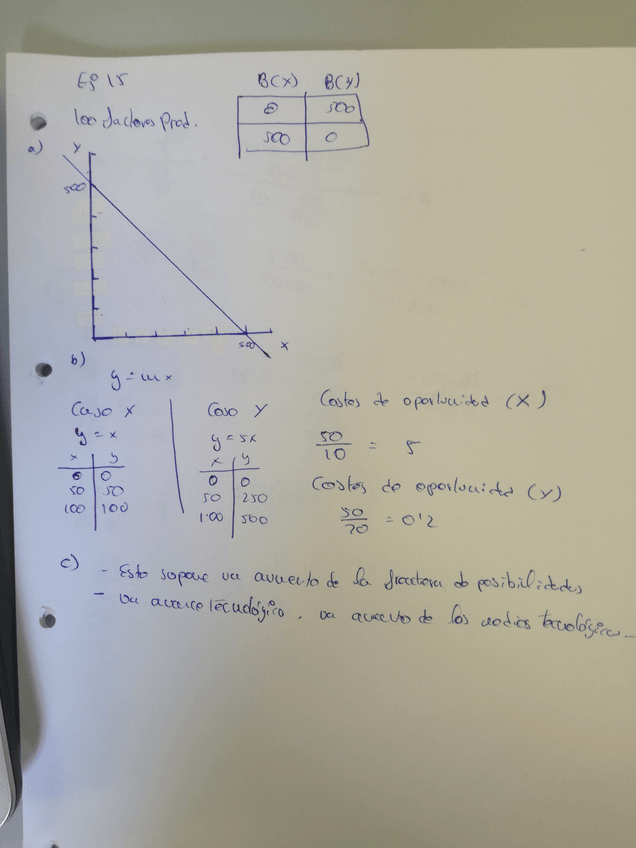 Ej 15
B(X) B(Y)
0 500
500 0
100 factores Prod.
a)
Y
500
500 X
b)
y = mx
Caso X
y = x
x y
0 0
50 50
100 100
Caso Y
y = 5x
x y
0 0
50 250
100 500
Costes de oportunidad (X)
50/10 = 5
Costes de oportunidad (Y)
= 0'2
c)
- Esto supone un aumento de la frontera de posibilidades
- un avance tecnológico, un aumento de los medios tecnológicos